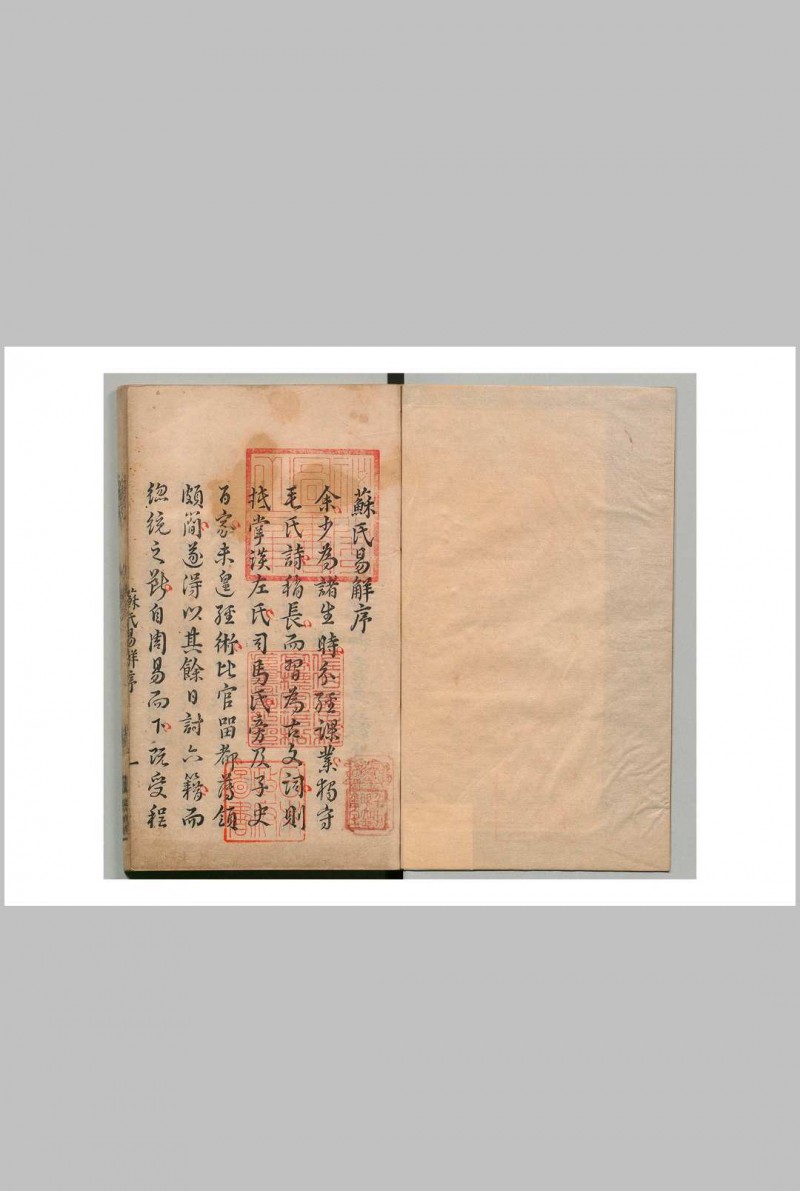 蘇氏易解序
余少為諸生時分經課業獨守
毛氏詩稍長而習為古文詞則
抵掌談左氏司馬氏旁及子史
百家未遑經術比官留都領
頗簡遂得以其餘日討六籍而
總統之斷自周易而下既受程
蘇氏易解序 一